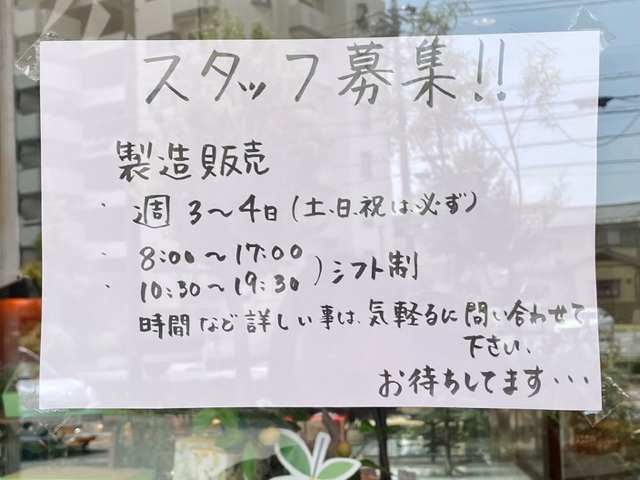 スタッフ募集!!
製造販売
・週3〜4日(土、日、祝は、必ず)
・8:00〜17:00
・10:30〜19:30 )シフト制
時間など詳しい事は、気軽るに問い合わせて
下さい、
お待ちしてます・・・